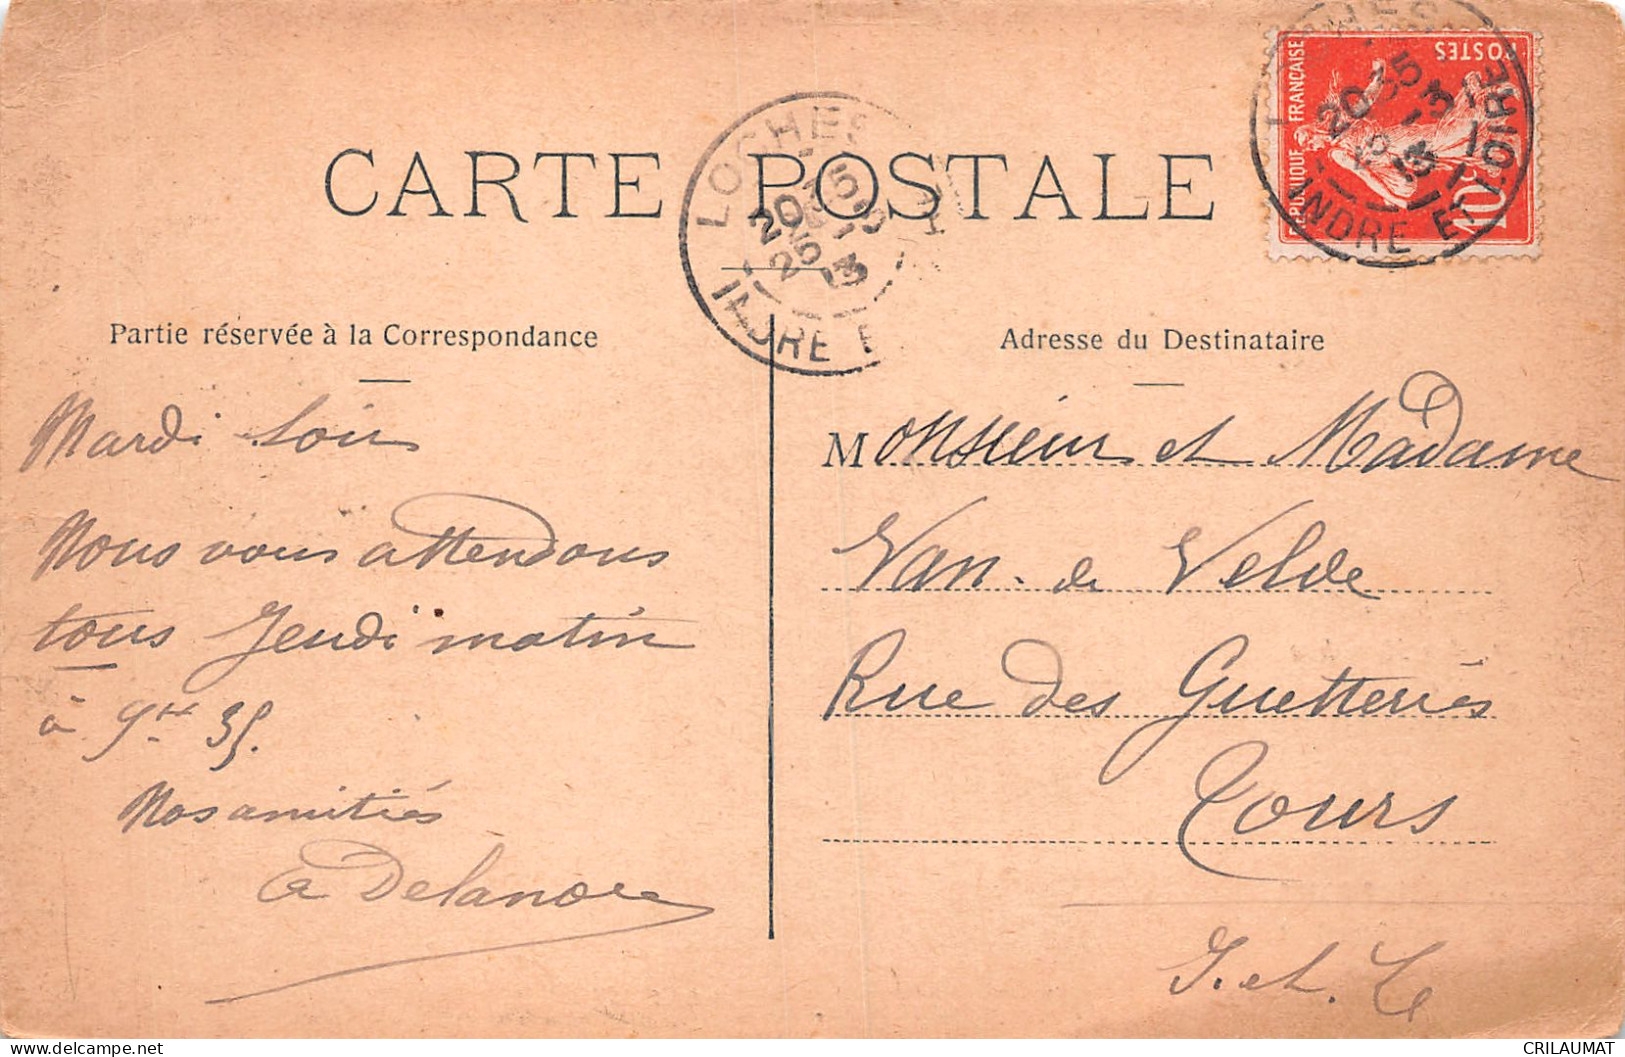 CARTE POSTALE
LOCHES
20 35
25 -3
13
INDRE E
LOCHES
20 35
25 -3
13
INDRE ET LOIRE
REPUBLIQUE FRANÇAISE
POSTES
10c
Partie réservée à la Correspondance
Mardi soir
Nous vous attendons
tous Jeudi matin
à 9hr 35.
Nos amitiés
Adresse du Destinataire
Monsieur et Madame
Van de Velde
Rue des Guetteries
Tours
I. et. L
CRILAUMAT